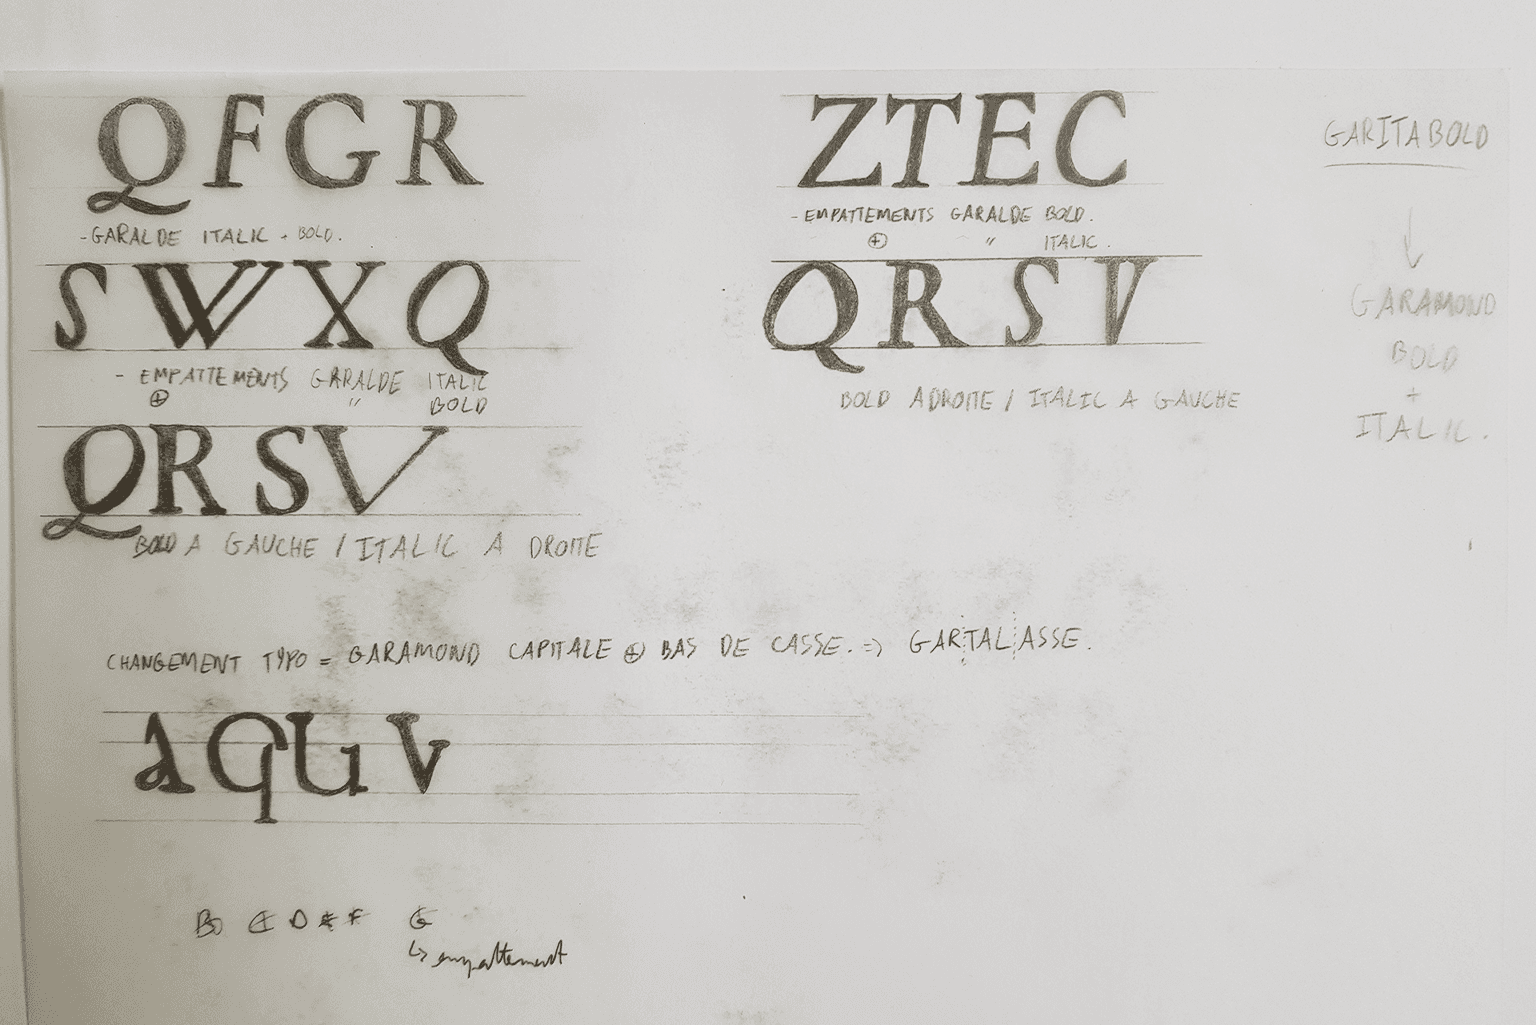 QFGR
- GARALDE ITALIC + BOLD.
SWXQ
- EMPATTEMENTS GARALDE ITALIC
⊕ " BOLD
QRSV
BOLD A GAUCHE / ITALIC A DROITE
ZTEC
- EMPATTEMENTS GARALDE BOLD.
⊕ " ITALIC.
QRSV
BOLD A DROITE / ITALIC A GAUCHE
GARITABOLD
↓
GARAMOND
BOLD
+
ITALIC.
CHANGEMENT TYPO = GARAMOND CAPITALE ⊕ BAS DE CASSE. => GARTALASSE.
AQUV
D
G
↳ empattement